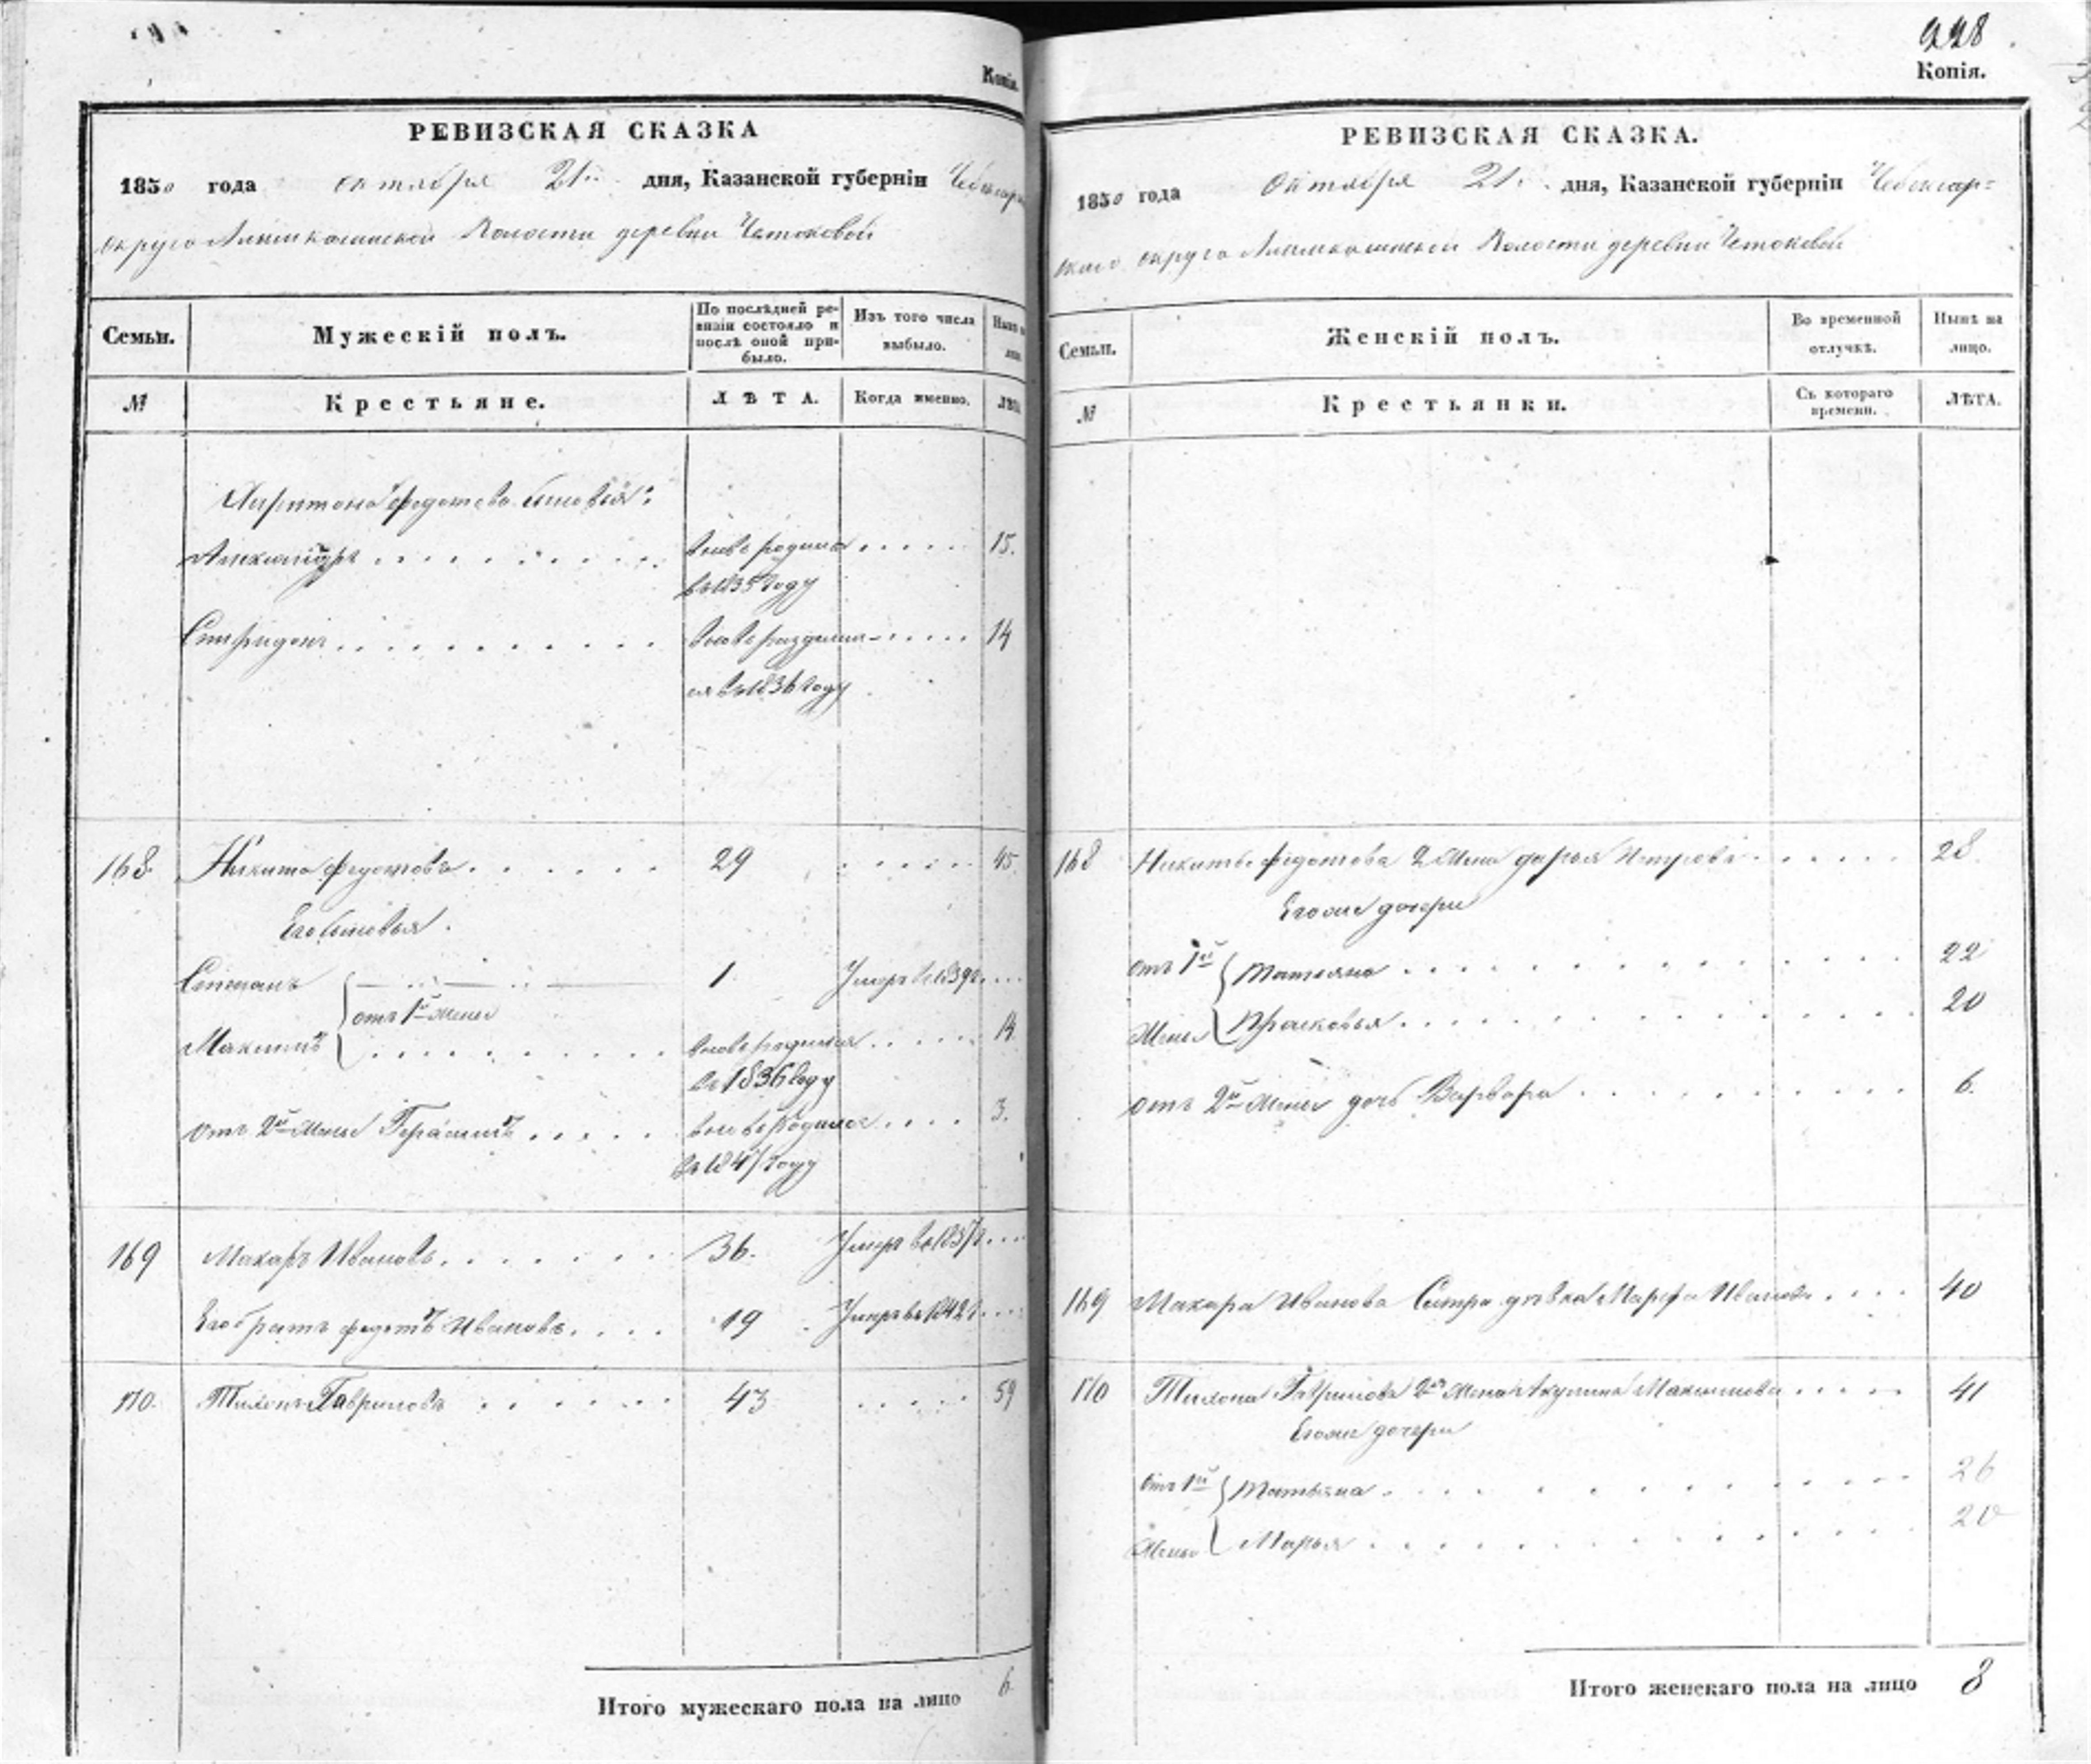 Копія.
РЕВИЗСКАЯ СКАЗКА
1850 года октября 21 дня, Казанской губерніи Чебоксар
округа Алымкасинской Волости деревни
Семьи.
Мужескій полъ.
По послѣдней ре-
визіи состояло и
послѣ оной при-
было.
Изъ того числа
выбыло.
№
Крестьяне.
ЛѢТА.
Когда именно.
Харитона Федотова сыновья:
Александръ
вновь родился
15.
въ 1835 году
Спиридонъ
вновь родил
14
ся въ 1836 году
168. Никита Федотовъ 29 45.
Его сыновья.
Степанъ 1 Умеръ въ 1839 г.
отъ 1й жены
Максимъ вновь родился 14
въ 1836 году
отъ 2й жены Герасимъ вновь родился 3.
въ 1847 году
169 Макаръ Ивановъ 36. Умеръ въ 1837 г.
Его братъ Федотъ Ивановъ 19 Умеръ въ 1842 г.
170. Тихонъ Гавриловъ 43 59
Итого мужескаго пола на лицо 6
228
Копія.
РЕВИЗСКАЯ СКАЗКА.
1850 года Октября 21 дня, Казанской губерніи Чебоксар=
скаго округа Алымкасинской Волости деревни
Семьи.
Женскій полъ.
Во временной
отлучкѣ.
Нынѣ на
лицо.
№
Крестьянки.
Съ котораго
времени.
ЛѢТА.
168 Никиты Федотова 2 жена Дарья Петрова 28
Его же дочери
отъ 1й Татьяна 22
жены Прасковья 20
отъ 2й жены дочь Варвара 6.
169 Макара Иванова Сестра дѣвка Марфа Иванова 40
170 Тихона Гаврилова 2я жена Акулина Максимова 41
Его же дочери
отъ 1й Татьяна 26
жены Марья 20
Итого женскаго пола на лицо 8